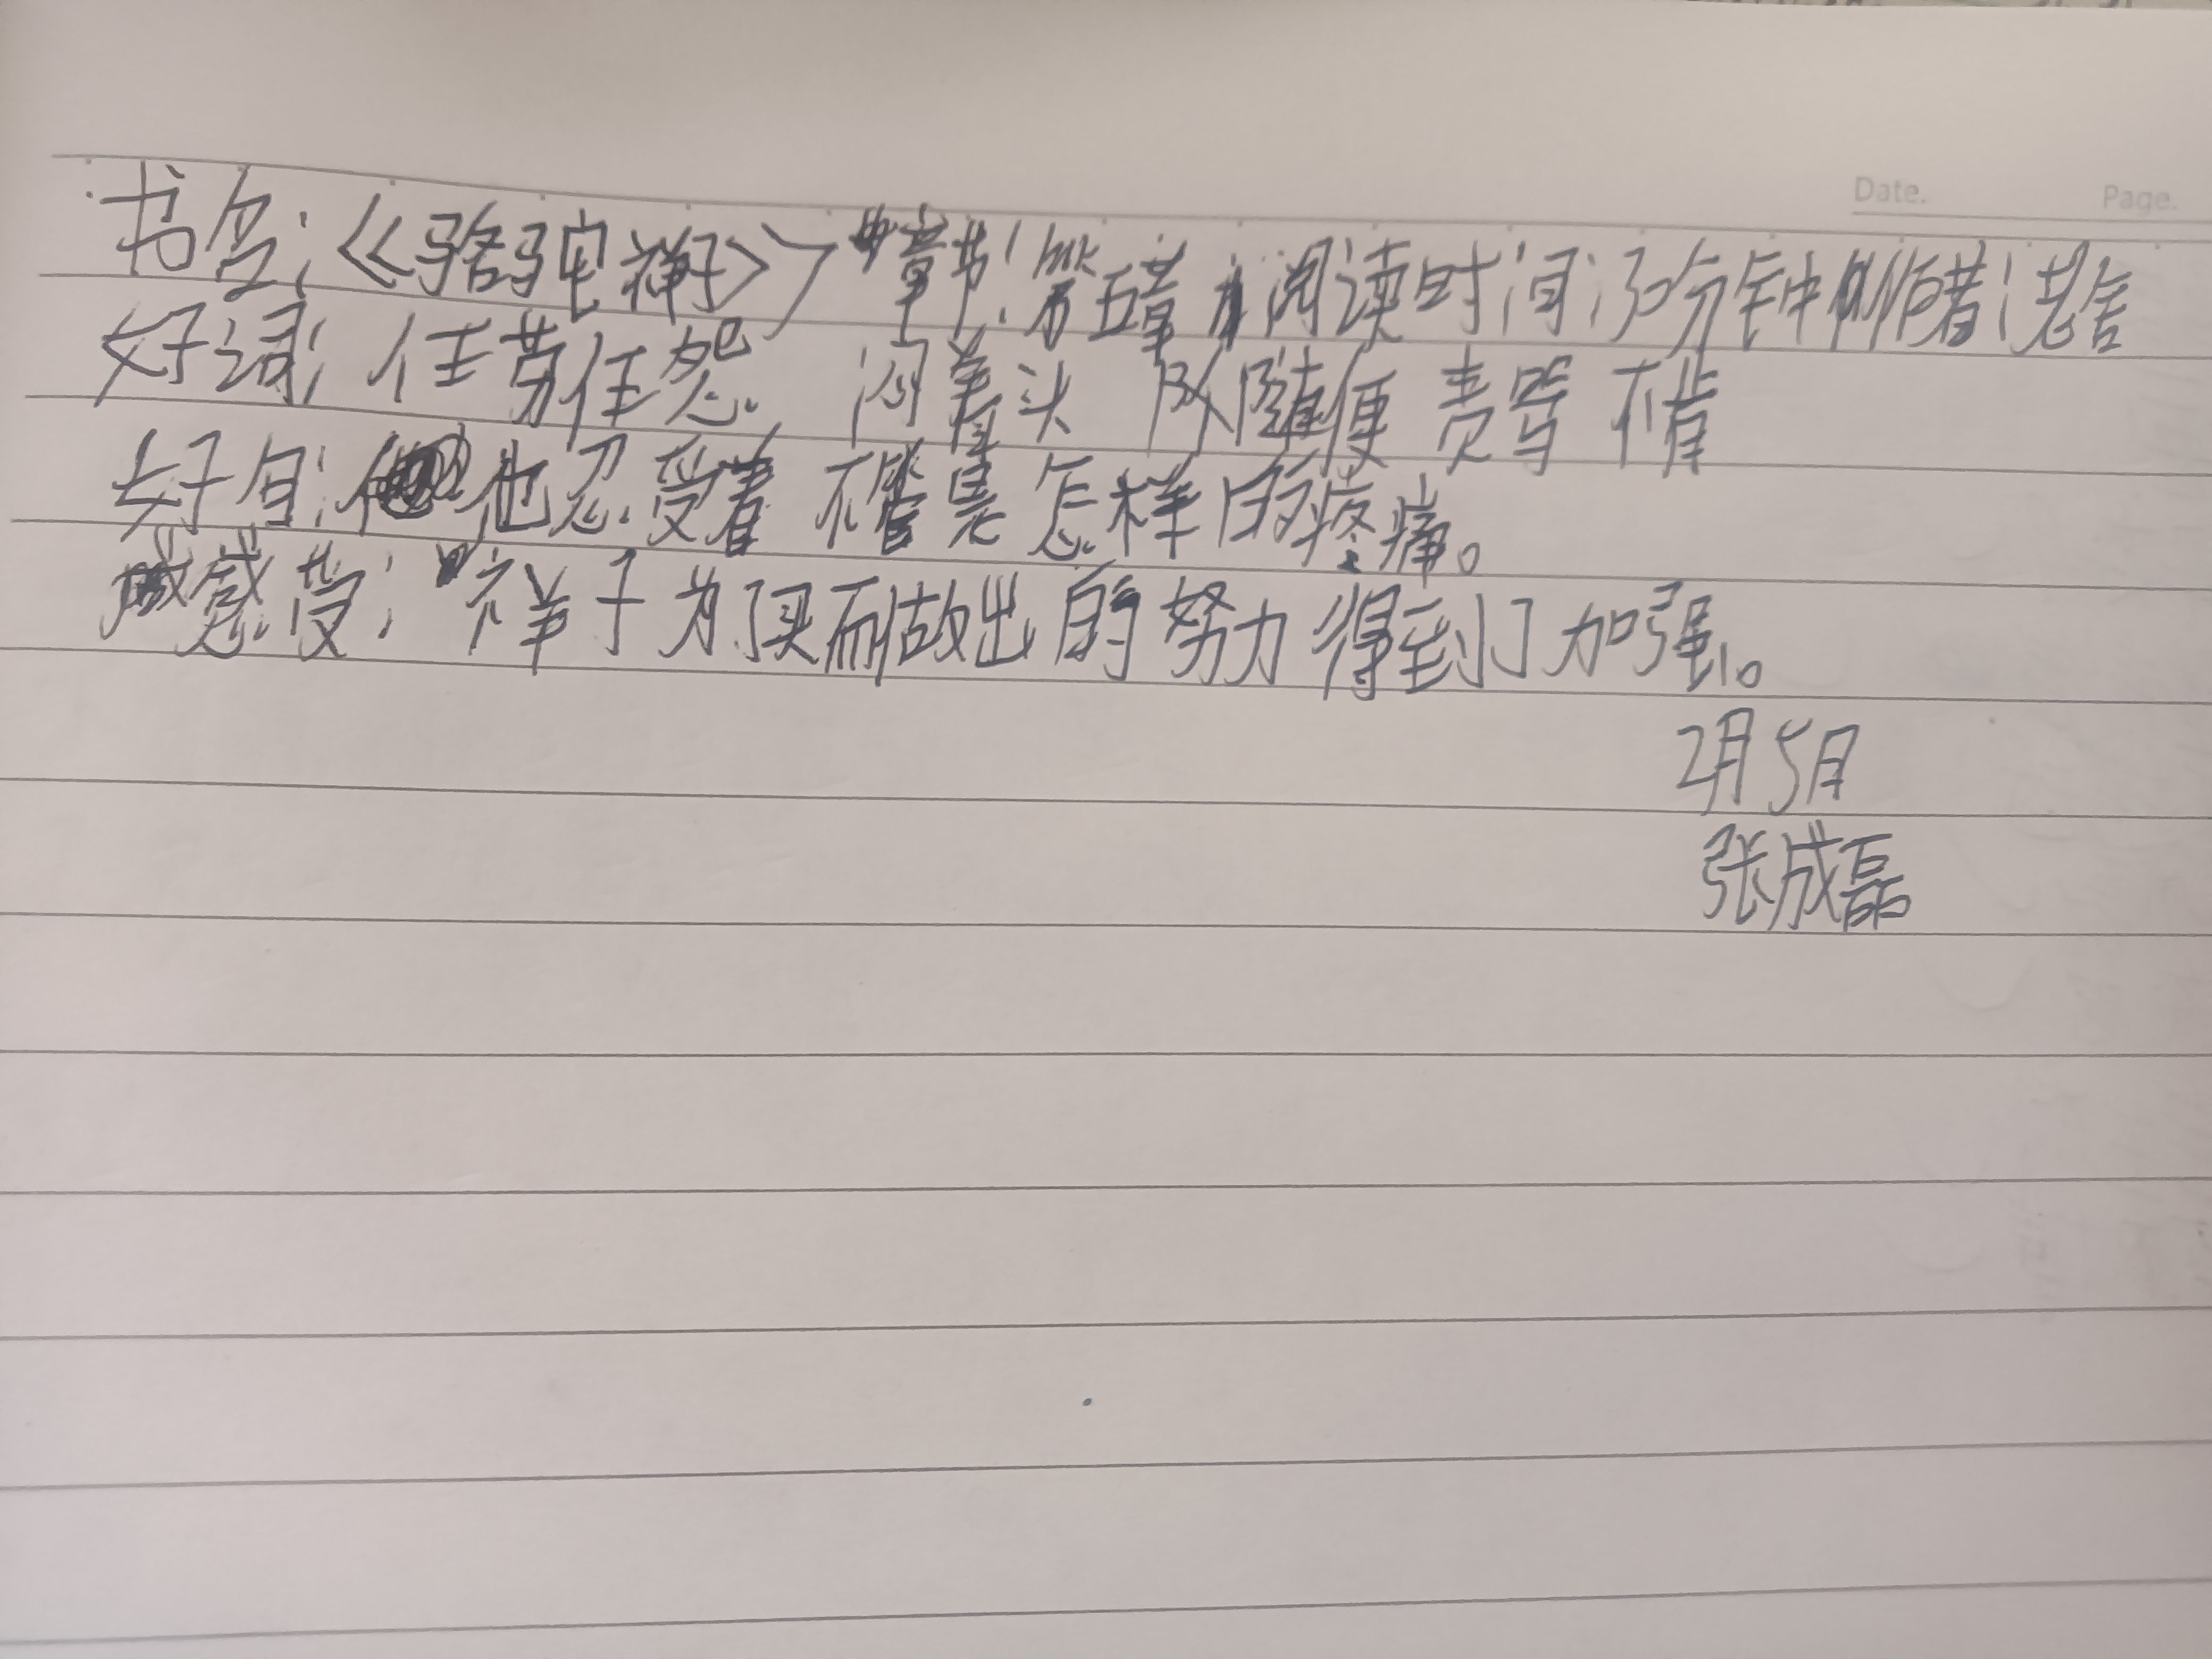 Date. Page.
书名：《骆驼祥子》 章节：第五章 阅读时间：30分钟 作者：老舍
好词：任劳任怨 闷着头 随便 责骂 不肯
好句：他忍受着 不管是怎样的疼痛。
感受：祥子为了买而做出的努力得到了加强。
2月5日
张成磊